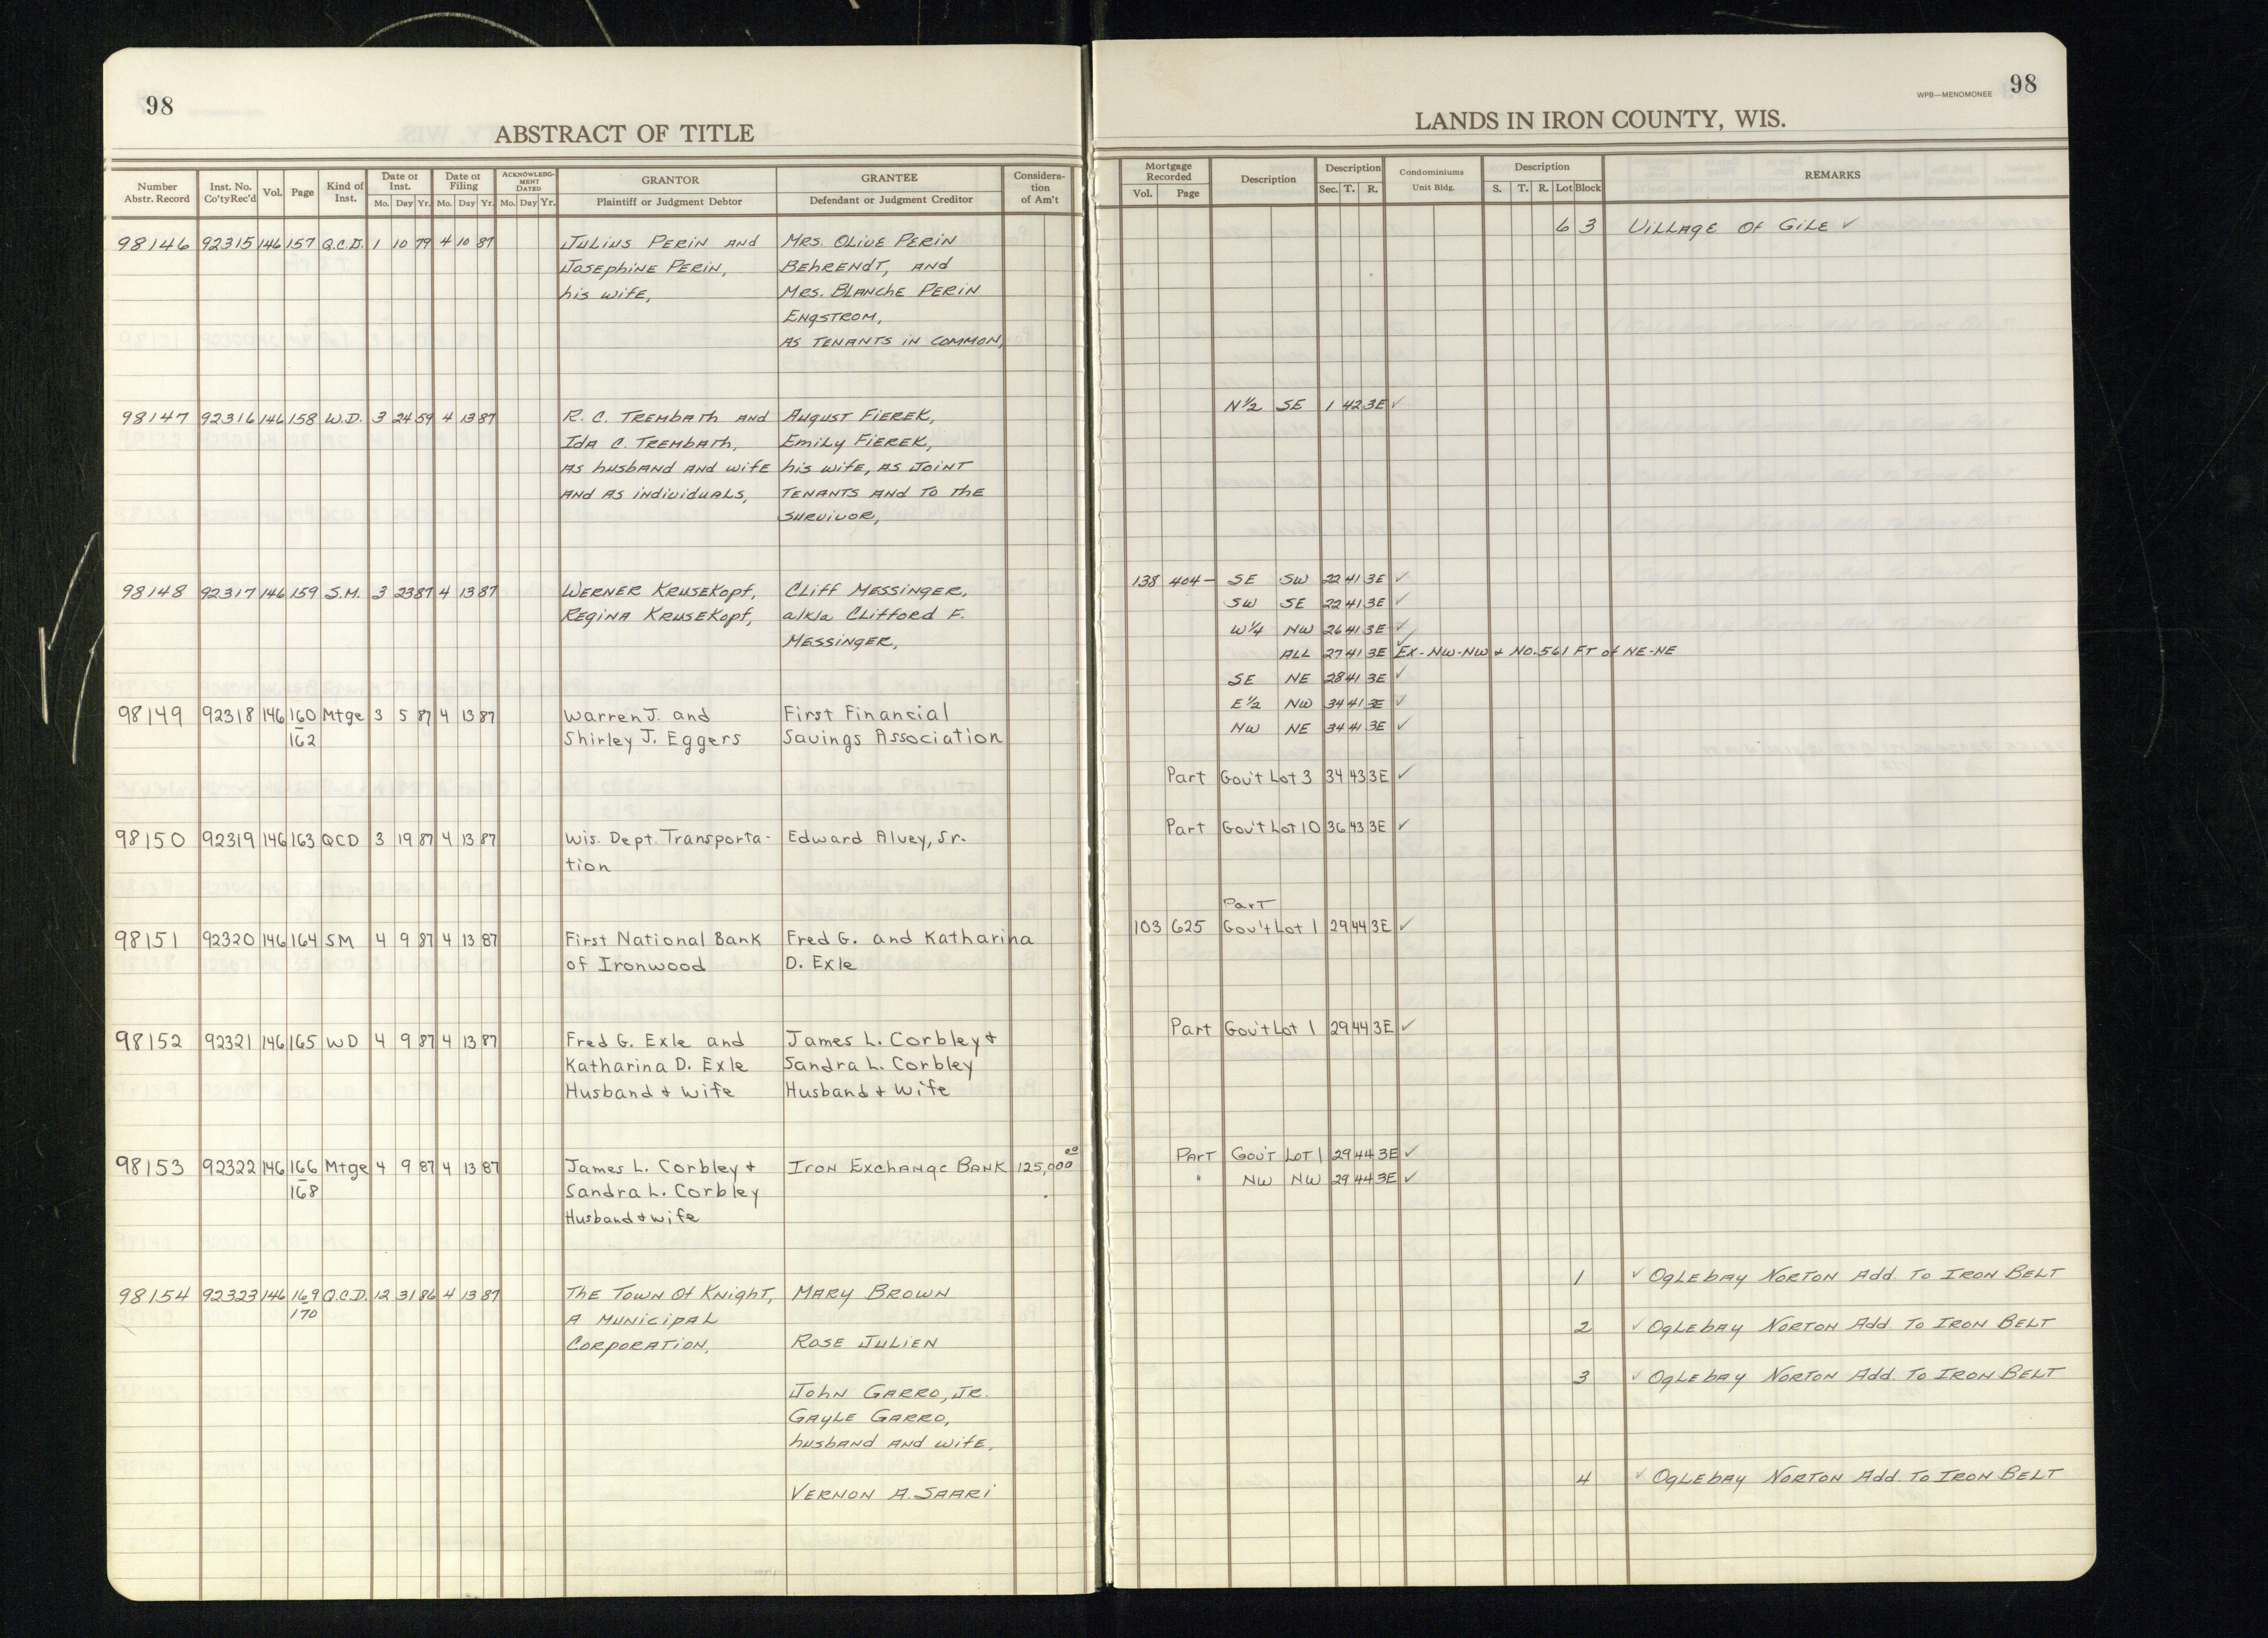 98
ABSTRACT OF TITLE
Number Abstr. Record
Inst. No. Co'ty Rec'd
Vol.
Page
Kind of Inst.
Date of Inst.
Mo. Day Yr.
Date of Filing
Mo. Day Yr.
ACKNOWLEDGMENT DATED
Mo. Day Yr.
GRANTOR
Plaintiff or Judgment Debtor
GRANTEE
Defendant or Judgment Creditor
Consideration of Am't
98146 92315 146 157 Q.C.D. 1 10 79 4 10 87 Julius Perin and Mrs. Olive Perin
Josephine Perin, Behrendt, and
his wife, Mrs. Blanche Perin
Engstrom,
as tenants in common,
98147 92316 146 158 W.D. 3 24 59 4 13 87 R. C. Trembath and August Fierek,
Ida C. Trembath, Emily Fierek,
as husband and wife his wife, as joint
and as individuals, tenants and to the
survivor,
98148 92317 146 159 S.M. 3 23 87 4 13 87 Werner Krusekopf, Cliff Messinger,
Regina Krusekopf, a/k/a Clifford F.
Messinger,
98149 92318 146 160 Mtge 3 5 87 4 13 87 Warren J. and First Financial
162 Shirley J. Eggers Savings Association
98150 92319 146 163 QCD 3 19 87 4 13 87 Wis. Dept. Transporta- Edward Alvey, Sr.
tion
98151 92320 146 164 SM 4 9 87 4 13 87 First National Bank Fred G. and Katharina
of Ironwood D. Exle
98152 92321 146 165 WD 4 9 87 4 13 87 Fred G. Exle and James L. Corbley +
Katharina D. Exle Sandra L. Corbley
Husband + Wife Husband + Wife
98153 92322 146 166 Mtge 4 9 87 4 13 87 James L. Corbley + Iron Exchange Bank 125,000 00
168 Sandra L. Corbley
Husband + wife
98154 92323 146 169 Q.C.D. 12 31 86 4 13 87 The Town Of Knight, Mary Brown
170 a Municipal
Corporation, Rose Julien
John Garro, Jr.
Gayle Garro,
husband and wife,
Vernon A. Saari
WPB—MENOMONEE 98
LANDS IN IRON COUNTY, WIS.
Mortgage Recorded
Vol. Page
Description
Description
Sec. T. R.
Condominiums
Unit Bldg.
Description
S. T. R. Lot Block
REMARKS
6 3 Village Of Gile ✓
N½ SE 1 42 3E ✓
138 404— SE SW 22 41 3E ✓
SW SE 22 41 3E ✓
W¼ NW 26 41 3E ✓
ALL 27 41 3E ✓ Ex-NW-NW + No. 561 FT of NE-NE
SE NE 28 41 3E ✓
E½ NW 34 41 3E ✓
NW NE 34 41 3E ✓
Part Gov't Lot 3 34 43 3E ✓
Part Gov't Lot 10 36 43 3E ✓
Part
103 625 Gov't Lot 1 29 44 3E ✓
Part Gov't Lot 1 29 44 3E ✓
Part Gov't Lot 1 29 44 3E ✓
" NW NW 29 44 3E ✓
1 ✓ Oglebay Norton Add. To Iron Belt
2 ✓ Oglebay Norton Add. To Iron Belt
3 ✓ Oglebay Norton Add. To Iron Belt
4 ✓ Oglebay Norton Add. To Iron Belt